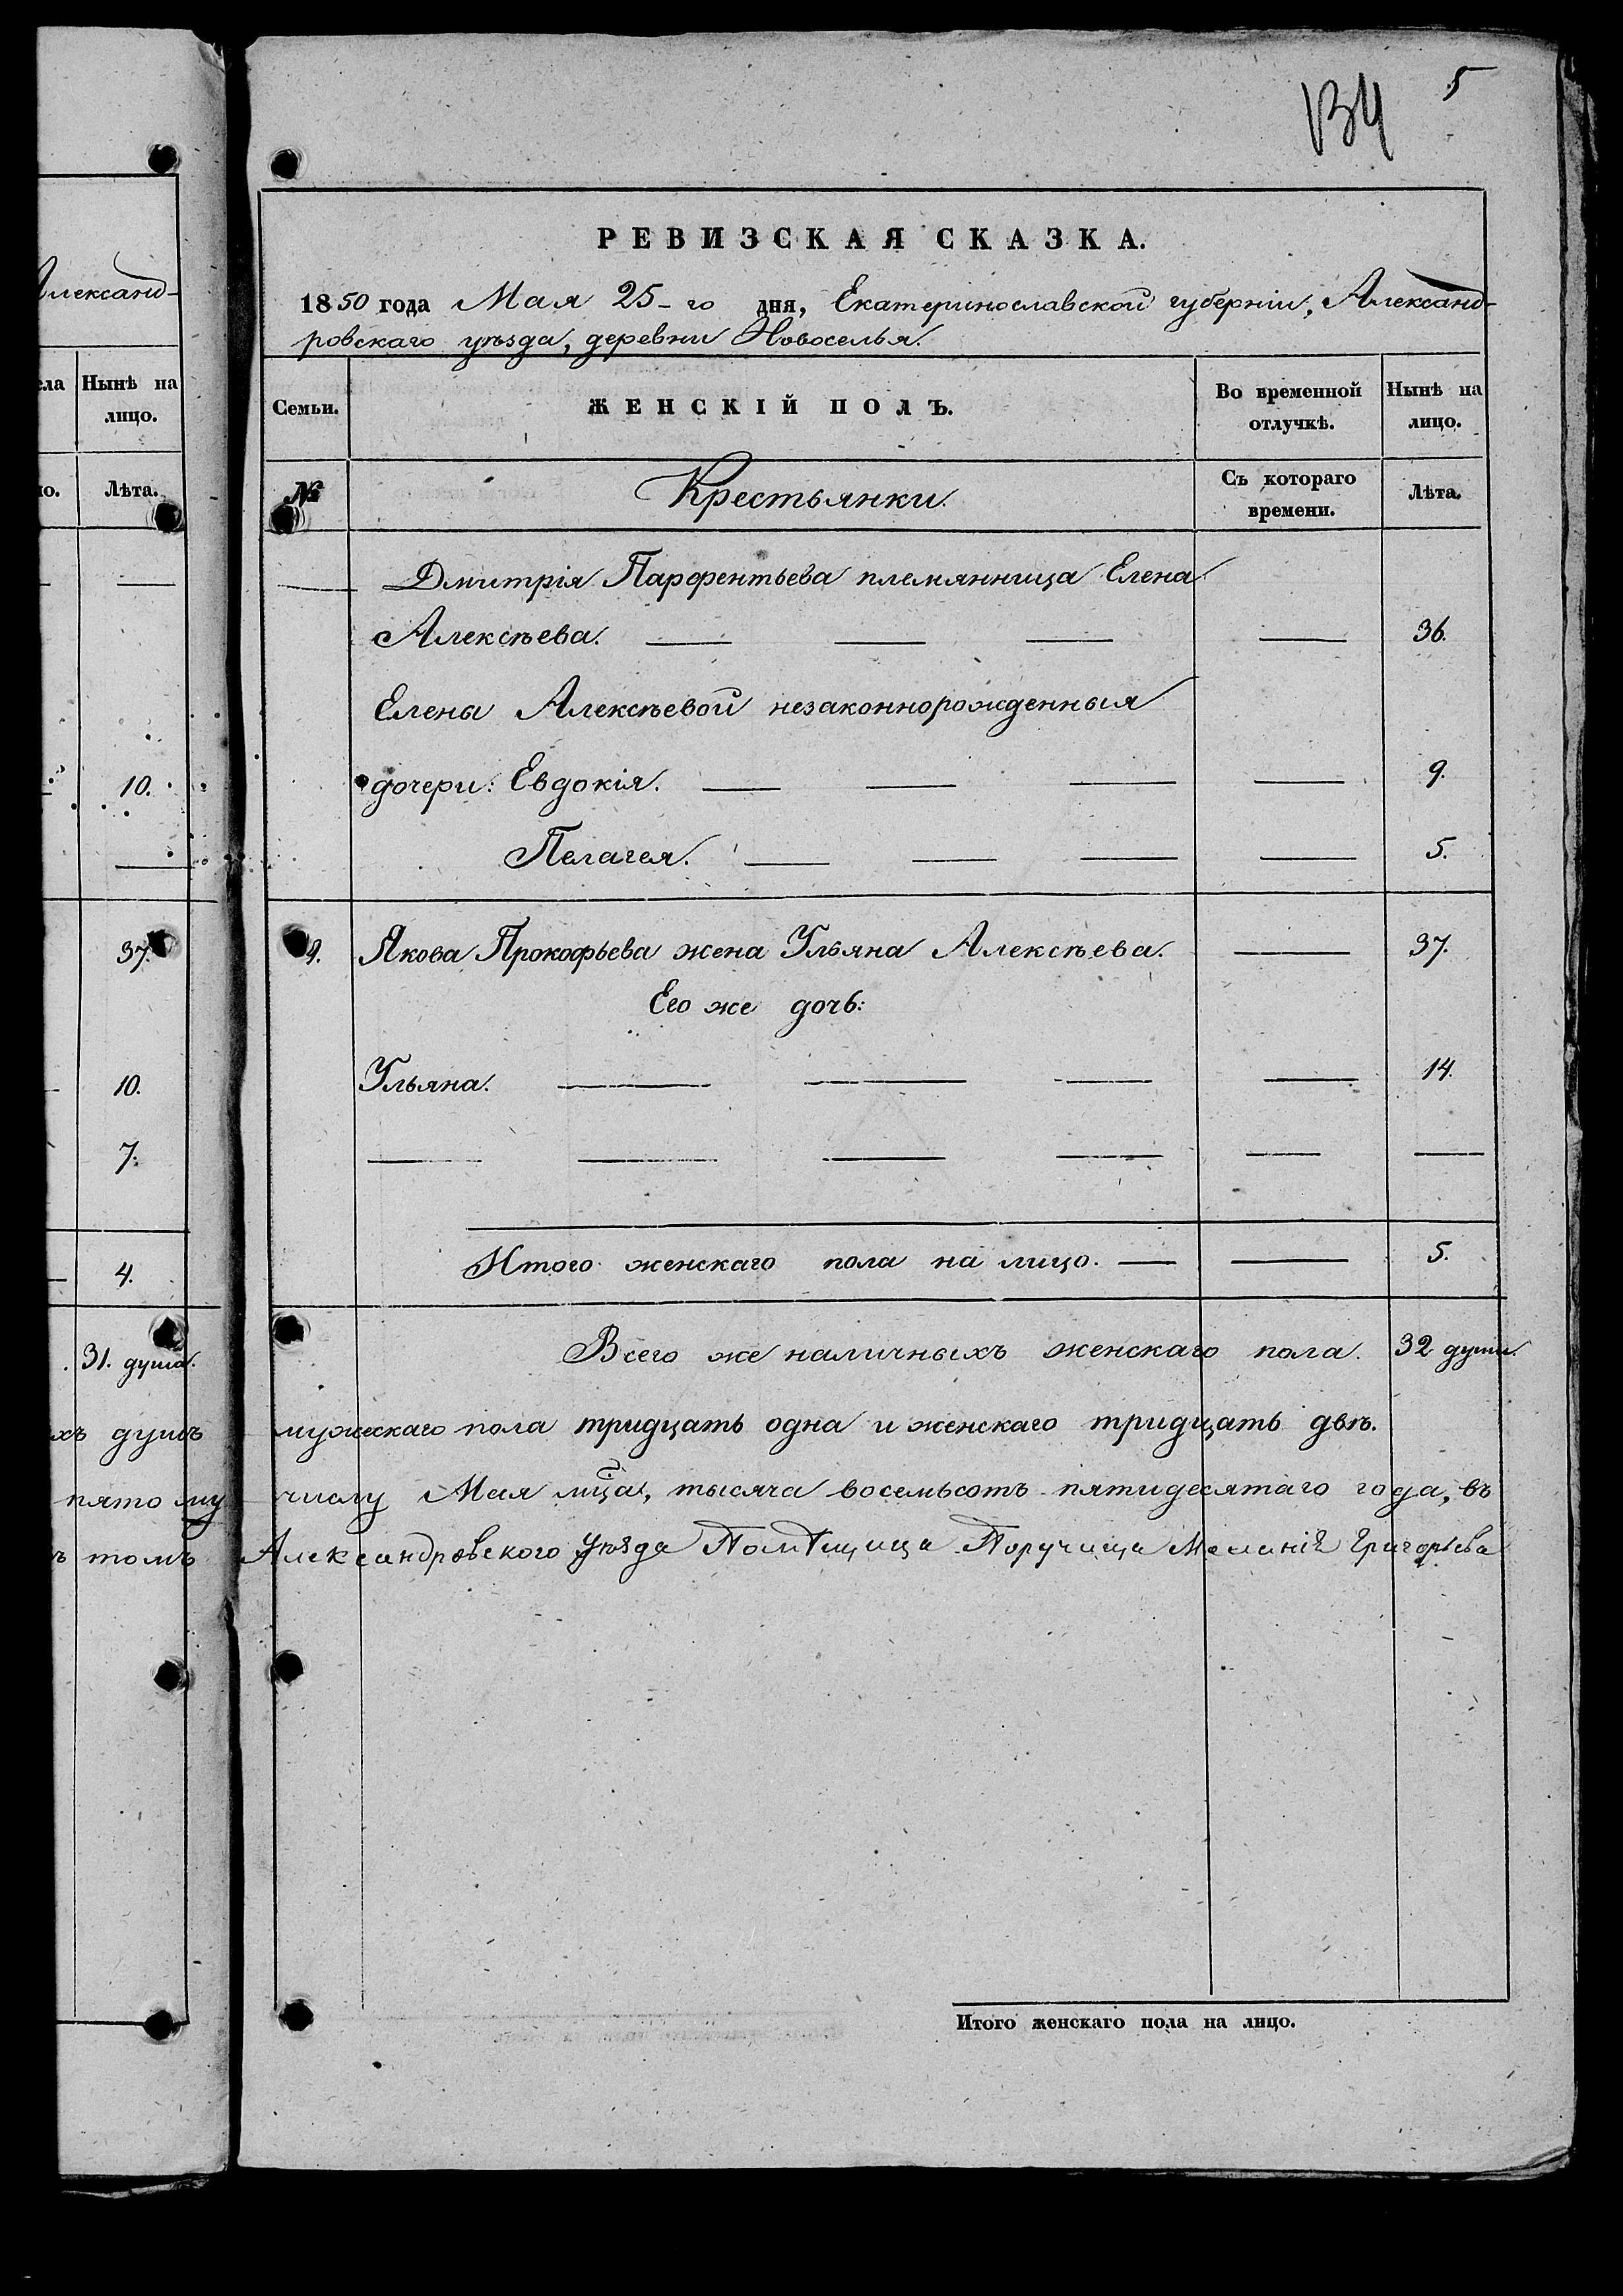 134 5
Александ-
РЕВИЗСКАЯ СКАЗКА.
1850 года Мая 25-го дня, Екатеринославской губерніи, Александ-
ровскаго уѣзда, деревни Новоселья.
Нынѣ на лицо.
Семьи. ЖЕНСКІЙ ПОЛЪ. Во временной отлучкѣ. Нынѣ на лицо.
Лѣта.
№ Крестьянки. Съ котораго времени. Лѣта.
Дмитрія Парфентьева племянница Елена
Алексѣева. — — — — 36.
Елены Алексѣевой незаконнорожденныя
10.
дочери: Евдокія. — — — — 9.
Пелагея. — — — — 5.
37.
9. Якова Прокофьева жена Ульяна Алексѣева. — 37.
Его же дочь:
10.
Ульяна. — — — — 14.
7.
— — — — — —
4.
Итого женскаго пола на лицо. — — 5.
31. душа.
Всего же наличныхъ женскаго пола. 32 души.
хъ душъ мужескаго пола тридцать одна и женскаго тридцать двѣ.
пятому числу Мая мца, тысяча восемьсотъ пятидесятаго года, въ
томъ Александровского уѣзда Помѣщица Поручица Меланія Григорьева
Итого женскаго пола на лицо.